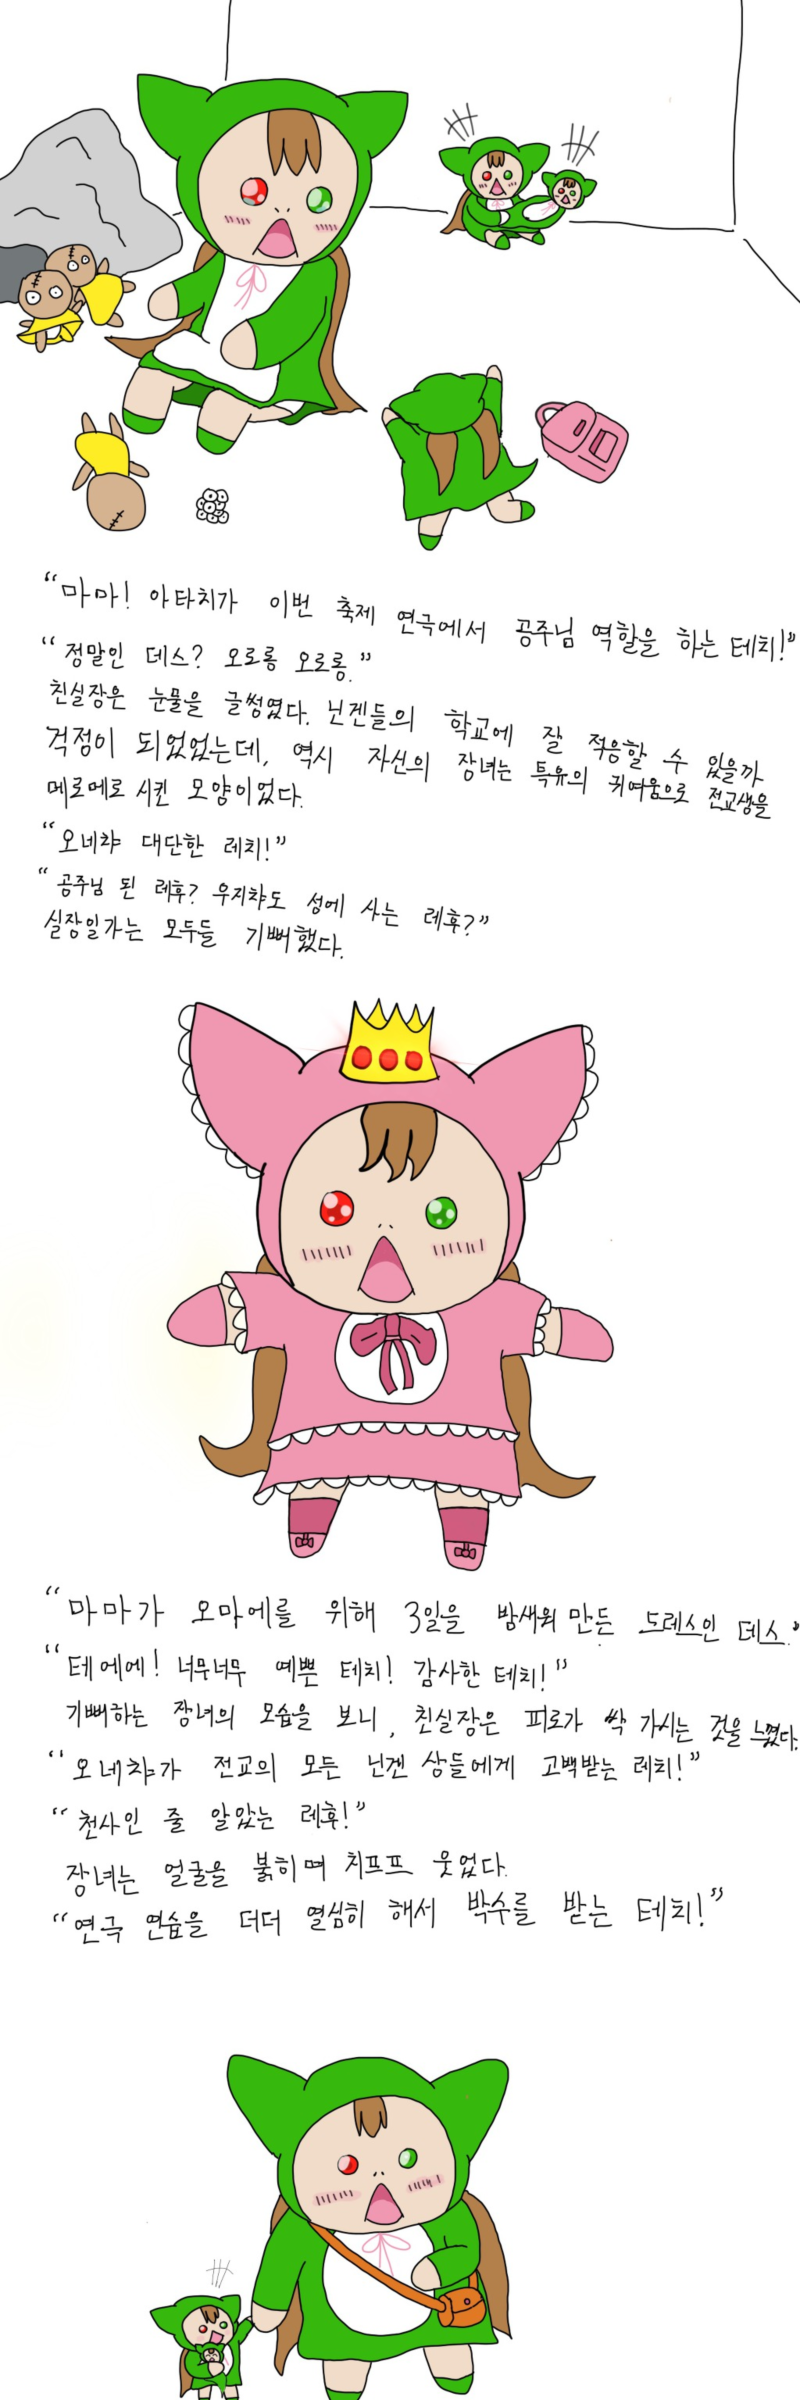 “마마! 아타치가 이번 축제 연극에서 공주님 역할을 하는 테치!”
“정말인 데스? 오로롱 오로롱.”
친실장은 눈물을 글썽였다. 닌겐들의 학교에 잘 적응할 수 있을까
걱정이 되었었는데, 역시 자신의 장녀는 특유의 귀여움으로 전교생을
메로메로 시킨 모양이었다.
“오네챠 대단한 레치!”
“공주님 된 레후? 우지챠도 성에 사는 레후?”
실장일가는 모두들 기뻐했다.
“마마가 오마에를 위해 3일을 밤새워 만든 도레스인 데스.”
“테에에! 너무너무 예쁜 테치! 감사한 테치!”
기뻐하는 장녀의 모습을 보니, 친실장은 피로가 싹 가시는 것을 느꼈다.
“오네챠가 전교의 모든 닌겐상들에게 고백받는 레치!”
“천사인 줄 알았는 레후!”
장녀는 얼굴을 붉히며 치프프 웃었다.
“연극 연습을 더더 열심히 해서 박수를 받는 테치!”